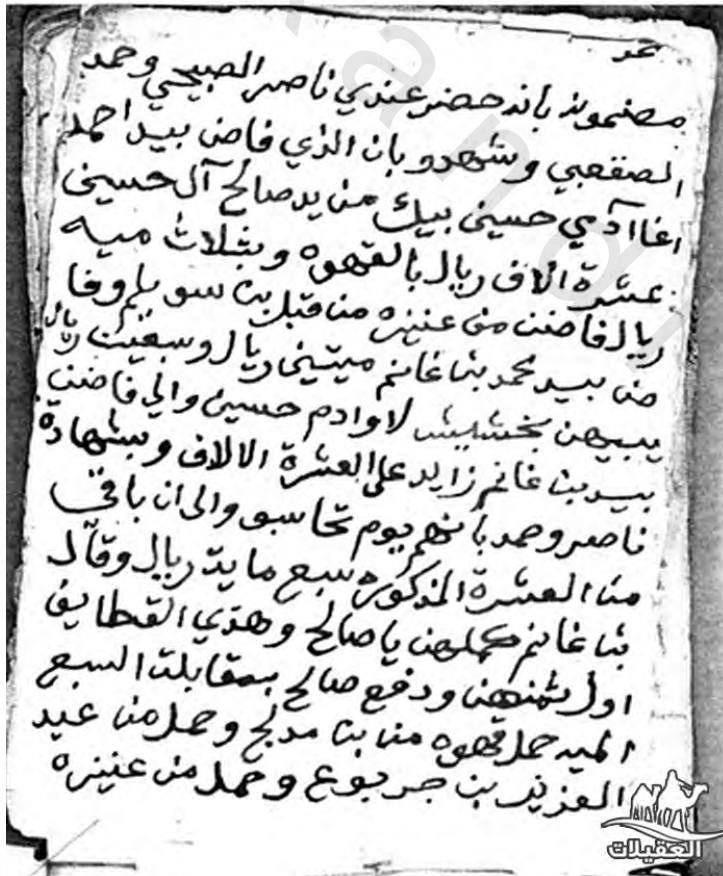 مضمونه بانه حضر عندي ناصر الصبيحي وحمد
الصقعبي وشهدو بان الذي فاض بيد احمد
اغا آدمي حسين بيك من يد صالح آل حسيني
عشرة الاف ريال بالقهوه وبثلاث ميه
ريال فاضن من عنيزه من قبل بن سويلم وفا
ضن بيد محمد بن غانم ميتين ريال وسبعين ريال
يبيهن بخشيش لاوادم حسين والي فاضن
بيد بن غانم زايد على العشرة الالاف وبشهادة
ناصر وحمد بانهم يوم تحاسبو والى ان باقي
من العشرة المذكوره سبع ماية ريال وقال
بن غانم كملهن يا صالح وهذي القطايف
اول ثمنهن ودفع صالح بمقابلة السبع
الميه حمل قهوه من بن مدلج وحمل من عبد
العزيز بن جربوع وحمل من عنيزه
العقيلات